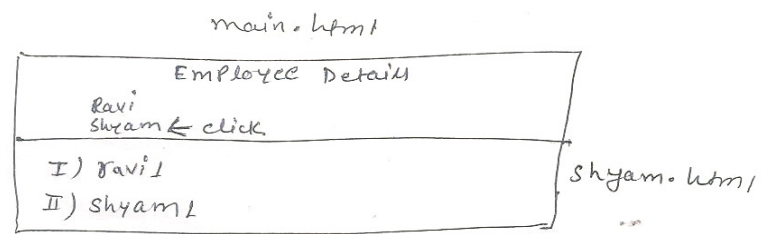 main.html
Employee Details
Ravi
Shyam ← click
I) ravi1
II) shyam1
shyam.html